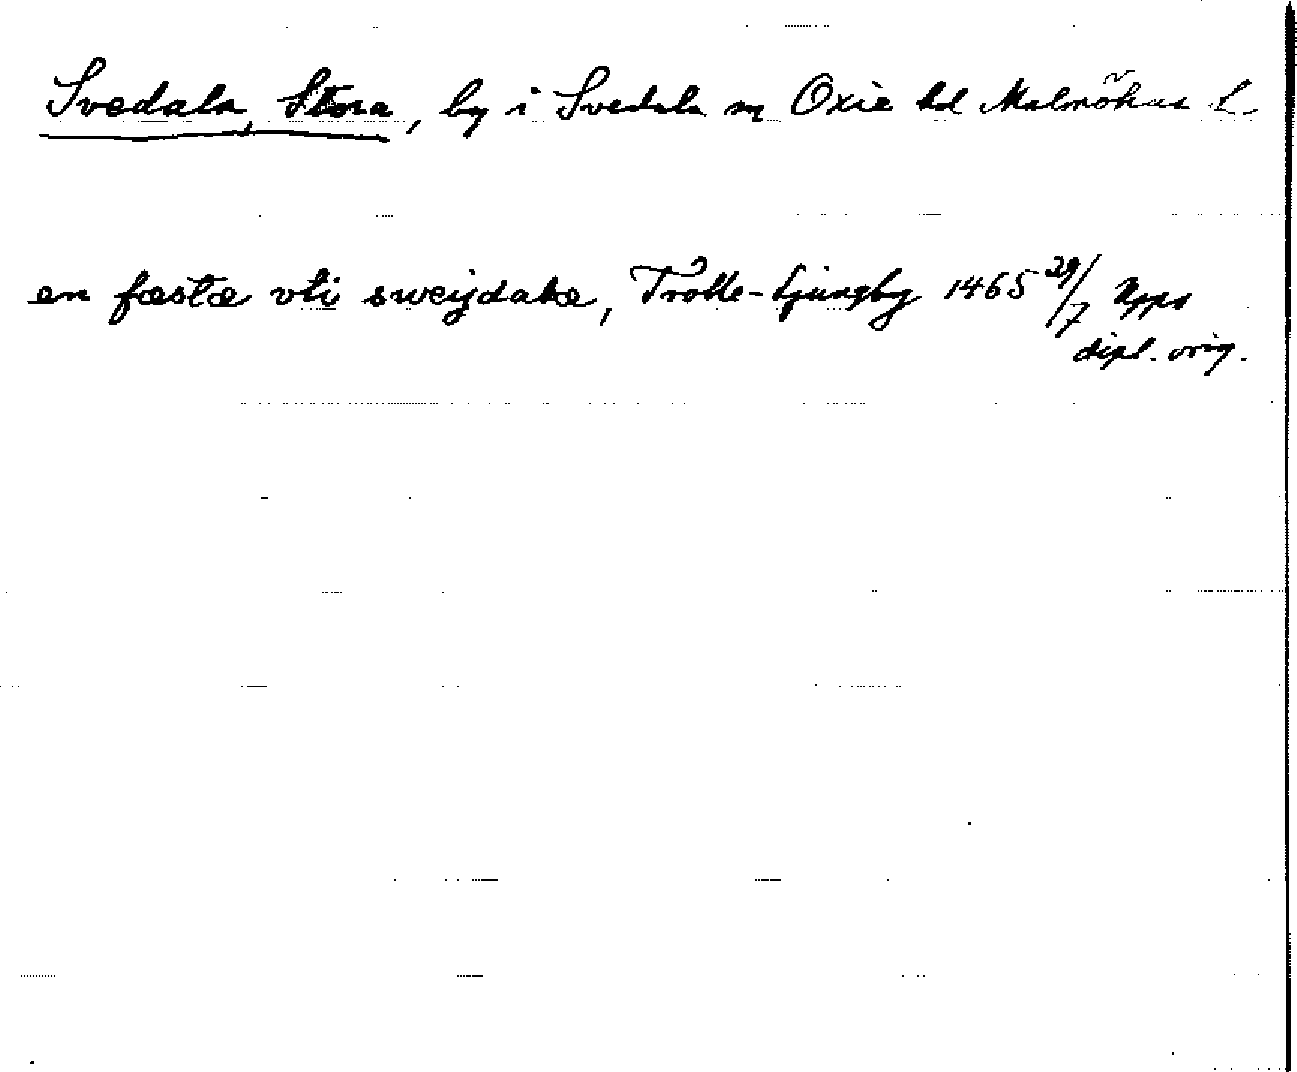 Svedala, Stora, by i Svedala sn Oxie hd Malmöhus l.
en fæstæ vti sweijdalæ, Trolle-Ljungby 1465 29/7 Upps
dipl. orig.